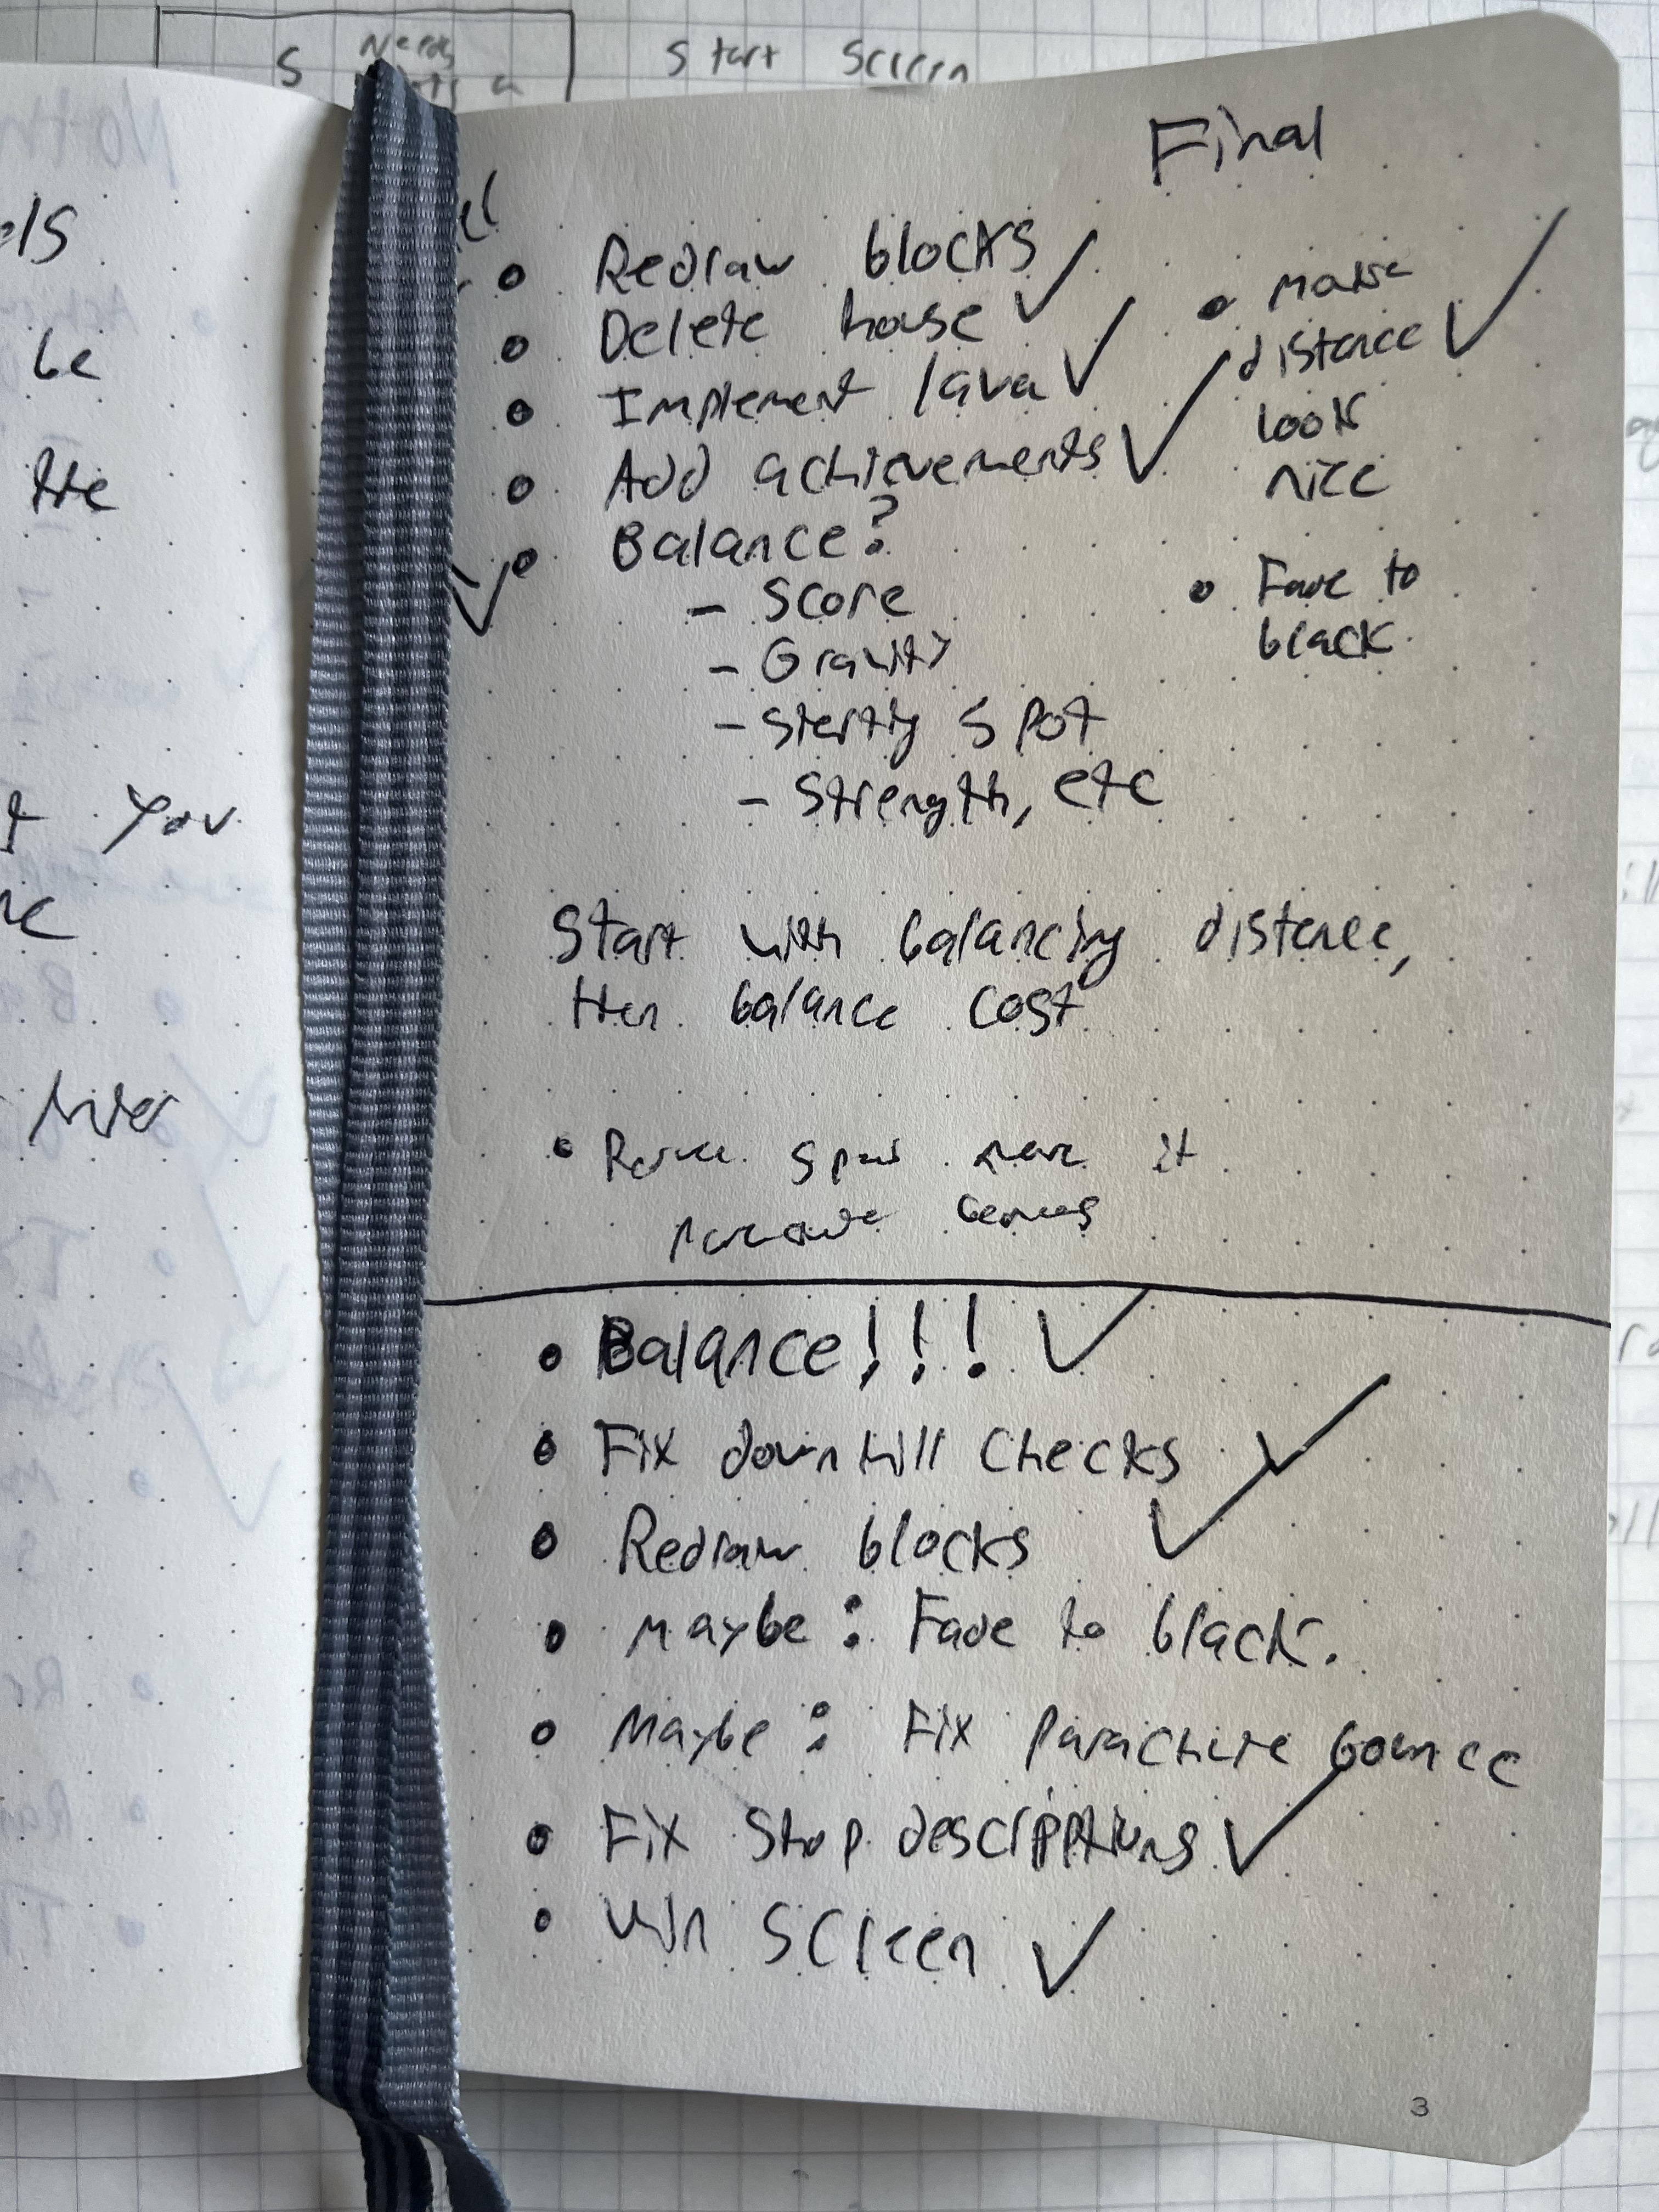 Needs
S
Start Screen
Final
els
be
the
you
river
• Redraw blocks ✓
• Delete house
• Implement lava ✓
• Add achievements ✓
✓ • Balance?
- Score
- Gravity
- Starting spot
- Strength, etc
• make
distance ✓
look
nice
• Fade to
black.
Start with balancing distance,
then balance cost
• spawn it
• Balance!!! ✓
• Fix downhill checks ✓
• Redraw blocks ✓
• Maybe: Fade to black.
• Maybe: Fix parachute bounce
• Fix shop descripptions ✓
• Win screen ✓
3